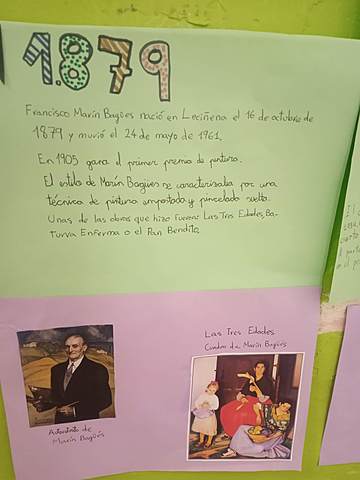 1.879
Francisco Marín Bagües nació en Leciñena el 16 de octubre de
1879 y murió el 24 de mayo de 1961.
En 1905 gana el primer premio de pintura.
El estilo de Marín Bagües se caracterizaba por una
técnica de pintura empastada y pincelada suelta.
Unas de las obras que hizo fueron: Las Tres Edades, Ba-
turra Enferma o el Pan Bendito.
Las Tres Edades
Cuadro de Marín Bagües
Autorretrato de
Marín Bagüés